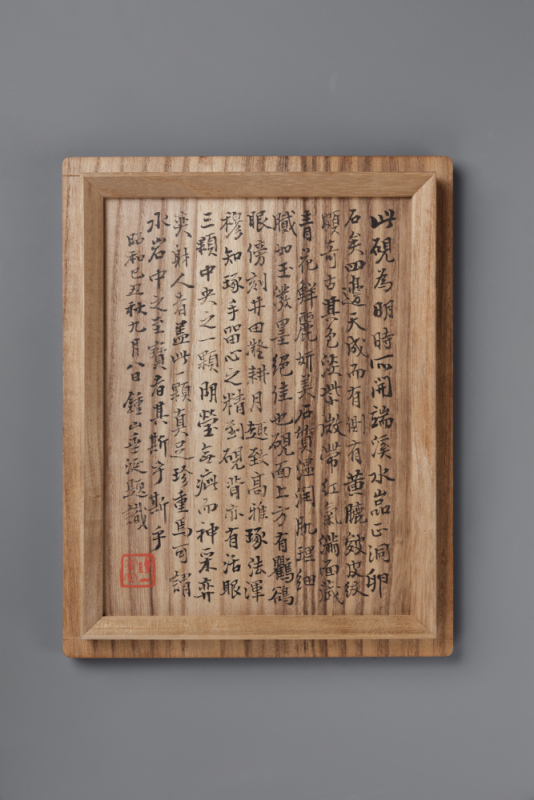 此硯為明時所開端溪水嵓正洞卵
石矣四邊天成而有側有黃臕皴皮紋
頗奇古其色淡紫微帶紅氣滿面藏
青花鮮麗妍美石質溫潤肌理細
膩如玉發墨絕佳也硯面上方有鸜鵒
眼傍刻井田發耕月趣致高雅琢法渾
穆知琢手留心之精到硯背亦有活眼
三顆中央之一顆明瑩無疵而神采弈
奕射人者蓋此一顆真足珍重焉可謂
水岩中之至寶者其斯乎斯乎
昭和己丑秋九月八日鍾山 題識